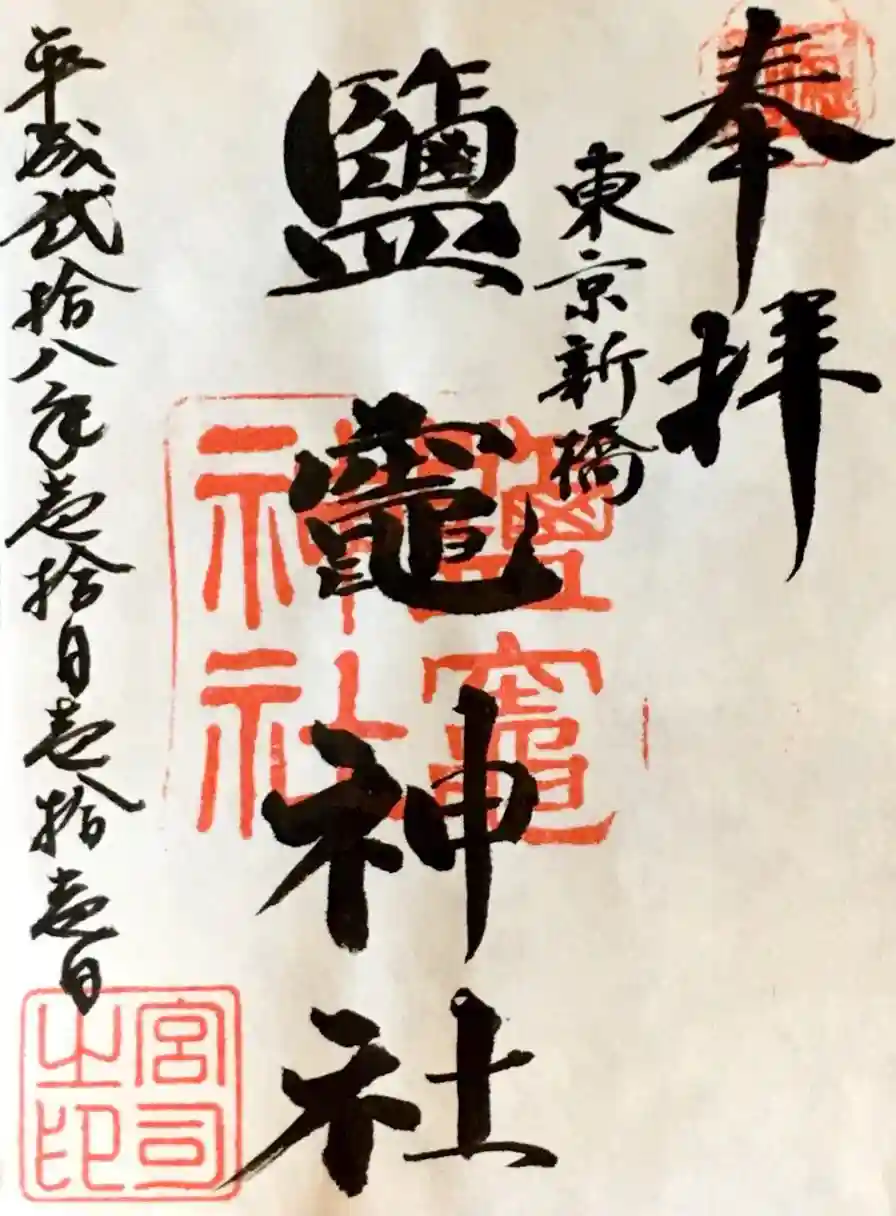 奉拝
東京新橋
鹽竈神社
鹽竈
神社
平成弐拾八年壹拾月壹拾壹日
宮司
之印